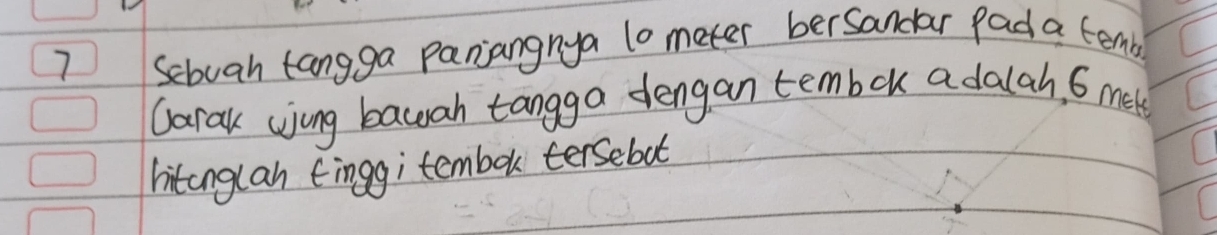 7 Sebuah tangga panjangnya 10 meter bersandar pada temb
Jarak ujung bawah tangga dengan tembok adalah 6 mete
hitunglah tinggi tembok tersebut